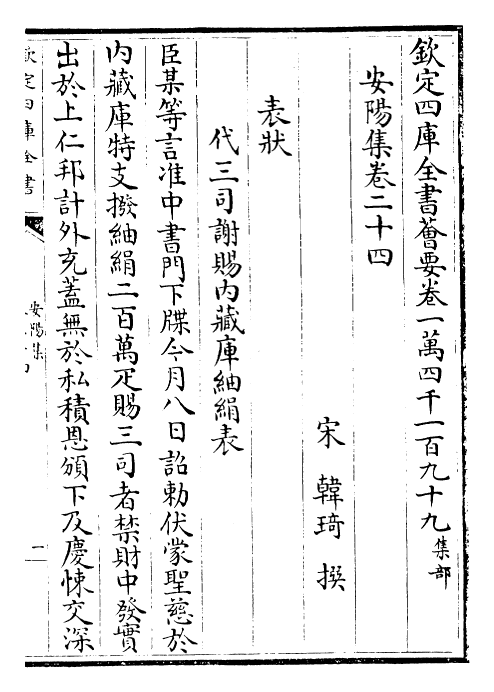 欽定四庫全書薈要卷一萬四千一百九十九集部
安陽集卷二十四
宋韓琦撰
表狀
代三司謝賜内藏庫紬絹表
臣某等言准中書門下牒今月八日詔勅伏蒙聖慈於
内藏庫特支撥紬絹二百萬疋賜三司者禁財中發實
出於上仁邦計外充蓋無於私積恩頒下及慶悚交深
欽定四庫全書
安陽集
一